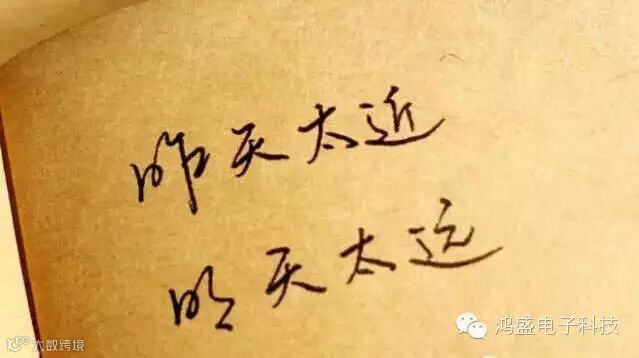 昨天太近
明天太远
鸿盛电子科技
大数跨境